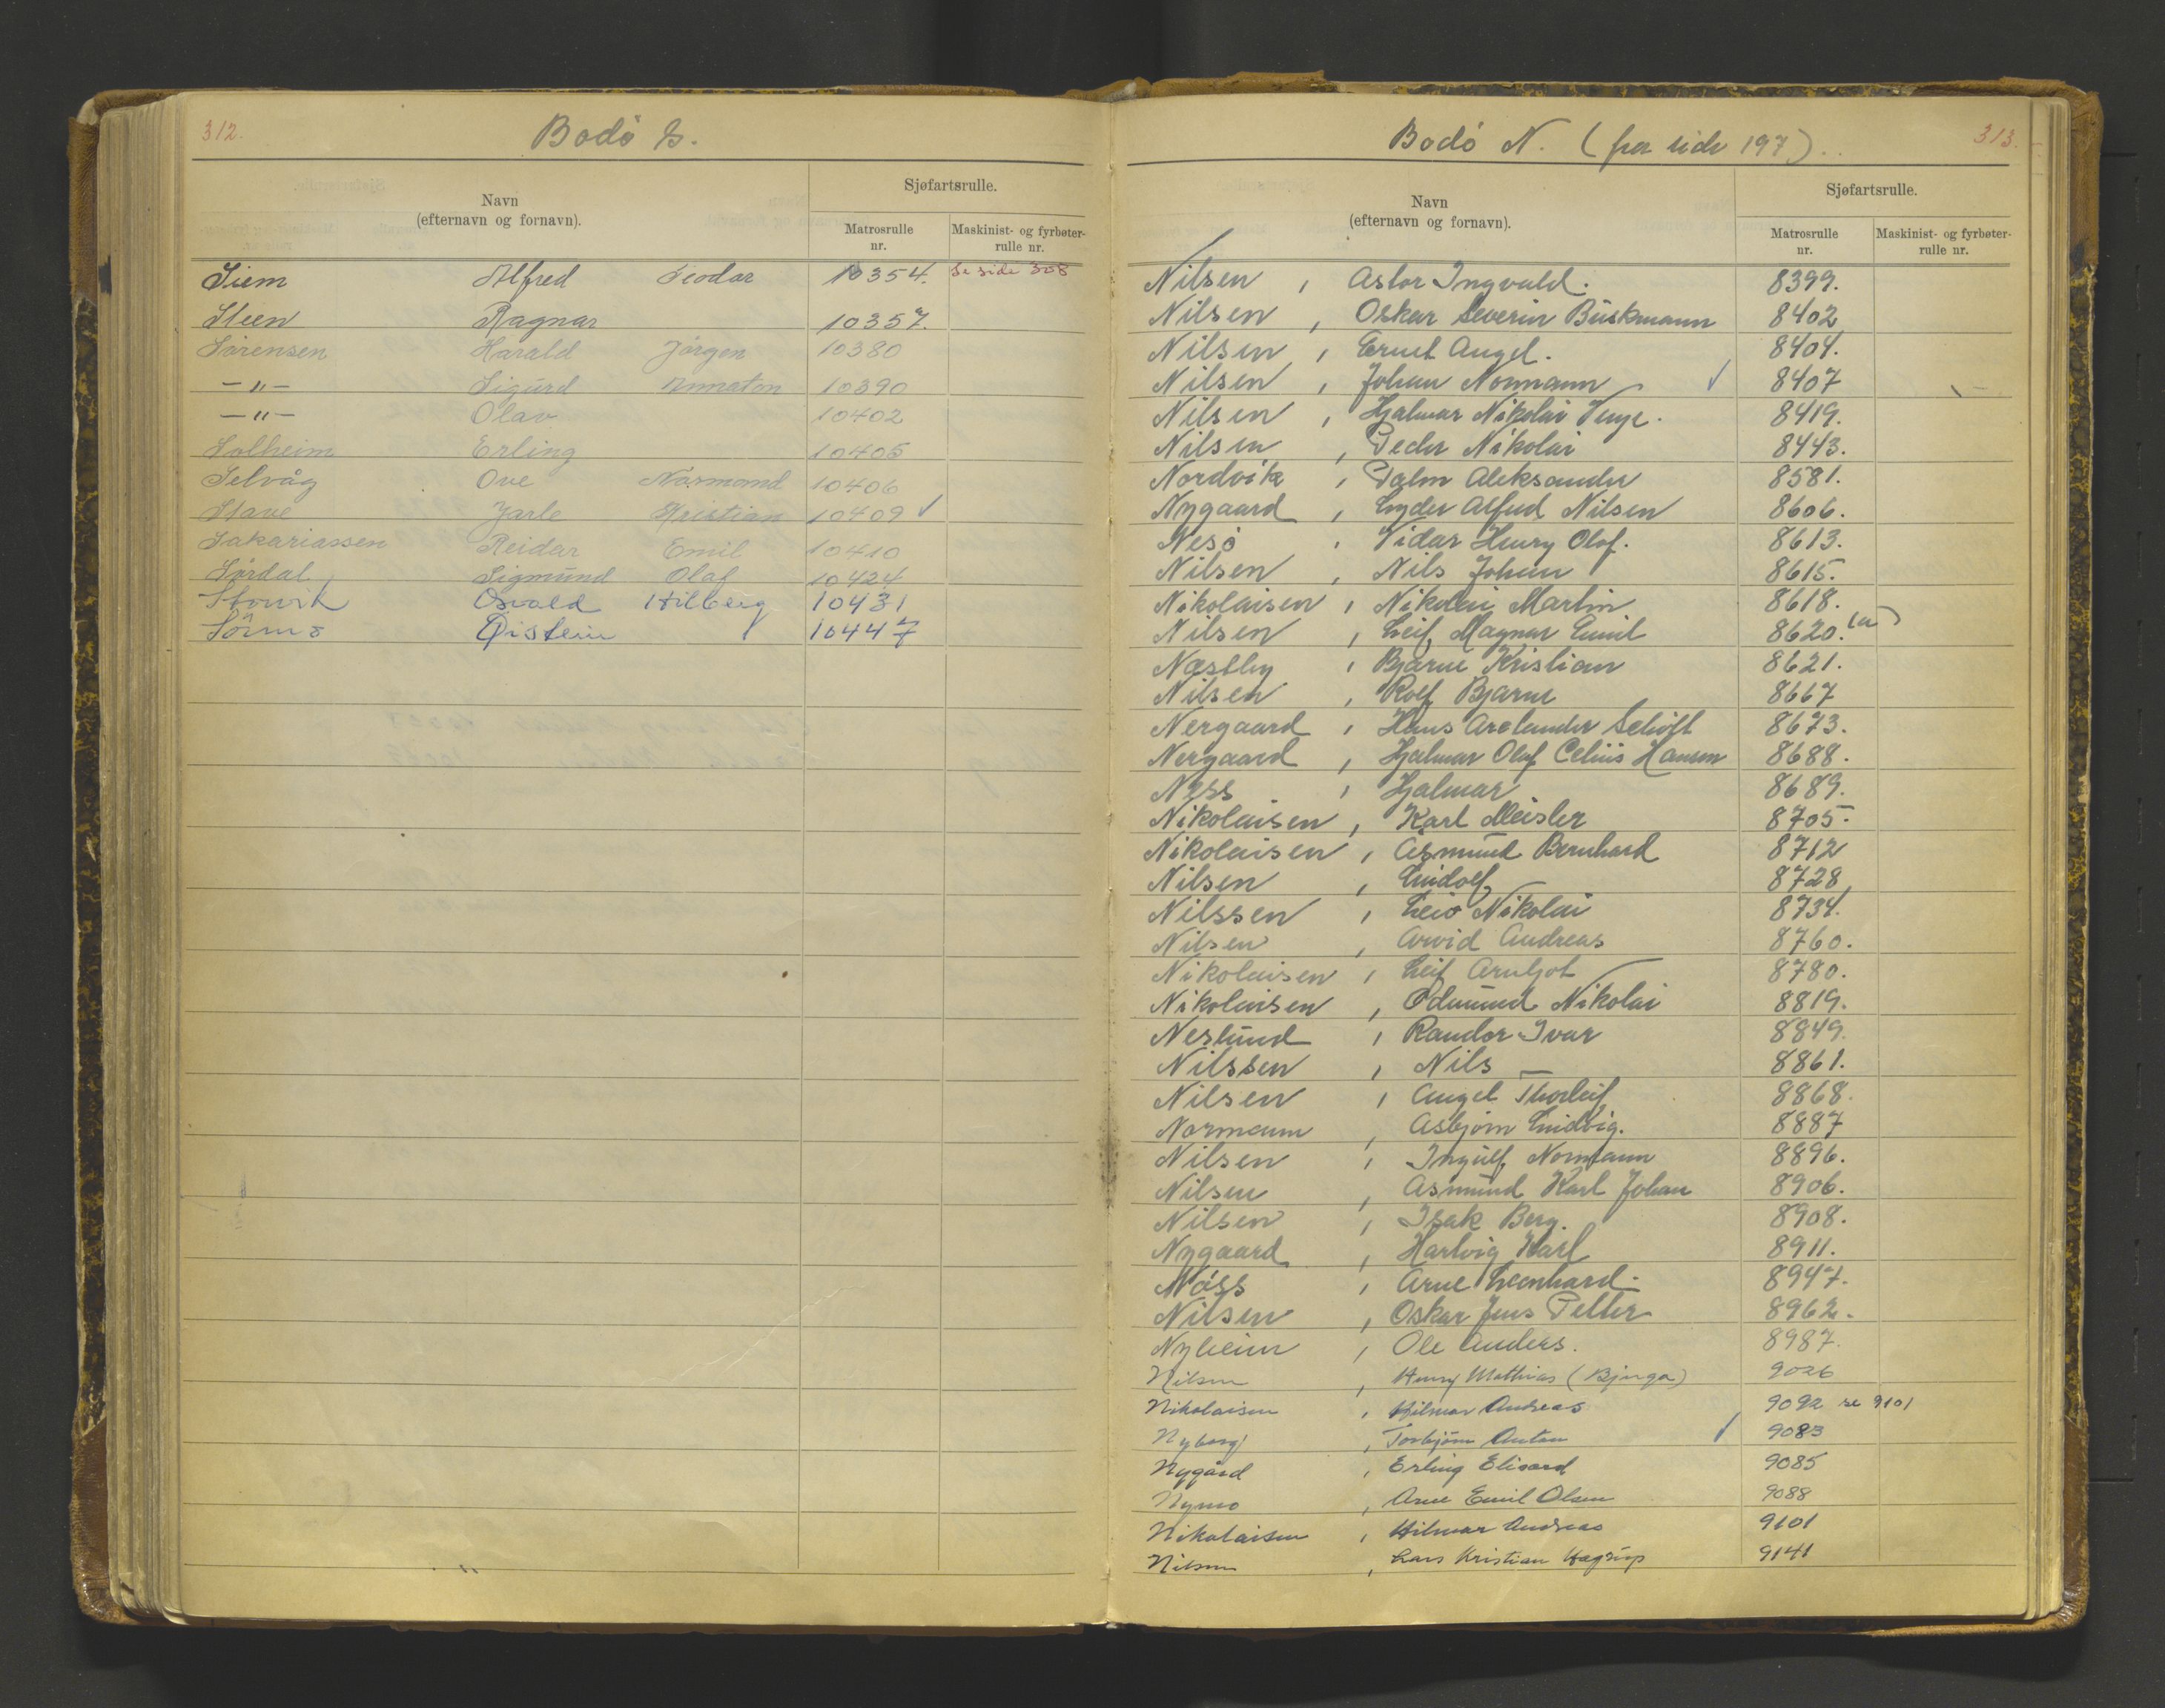 312.
Bodö S.
Navn
(efternavn og fornavn).
Sjøfartsrulle.
Matrosrulle
nr.
Maskinist- og fyrbøter-
rulle nr.
Siem Alfred Teodor 10354. Se side 308
Steen Ragnar 10357.
Sörensen Harald Jörgen 10380
—"— Sigurd 10390
—"— Olav 10402
Solheim Erling 10405
Selvåg Ove Normand 10406
Stave Jarle Kristian 10409 ✓
Sakariassen Reidar Emil 10410
Sördal Sigmund Olaf 10424
Storvik Osvald Hilberg 10431
Öistein 10447
313.
Bodö N. (fra side 197).
Navn
(efternavn og fornavn).
Sjøfartsrulle.
Matrosrulle
nr.
Maskinist- og fyrbøter-
rulle nr.
Nilsen, Astor Ingvald. 8399.
Nilsen, Oskar Severin Buskmann 8402
Nilsen, Ernst Angel. 8404.
Nilsen, Johan Normann ✓ 8407
Nilsen, Hjalmar Nikolai 8419.
Nilsen, Peder Nikolai 8443.
Nordvik, Palm Aleksander 8581.
Nygaard, Lyder Alfred Nilsen 8606.
Nesö, Vidar Henry Olaf. 8613.
Nilsen, Nils Johan 8615.
Nikolaisen, Nikolai Martin 8618.
Nilsen, Leif Magnar Emil 8620. (a)
Næstby, Bjarne Kristian 8621.
Nilsen, Rolf Bjarne 8667
Nergaard, Hans Schöft 8673.
Nergaard, Hjalmar Olaf Celius Hansen 8688.
Næss, Hjalmar 8689.
Nikolaisen, Karl Meisler 8705.
Nikolaisen, Asmund Bernhard 8712
Nilsen, Luidolf 8728
Nilssen, Leio Nikolai 8734.
Nilsen, Arvid Andreas 8760.
Nikolaisen, Leif Arnljot 8780.
Nikolaisen, Odmund Nikolai 8819.
Neslund, Randor Ivar 8849.
Nilssen, Nils 8861.
Nilsen, Angel Thorleif 8868.
Normann, Asbjörn Ludvig. 8887
Nilsen, Ingulf Normann 8896.
Nilsen, Asmund Karl Johan 8906.
Nilsen, Isak Berg. 8908.
Nygaard, Hartvig Karl 8911.
Nöss, Arne Leonhard. 8947.
Nilsen, Oskar Jens Petter 8962.
Nyheim, Ole Anders. 8987.
Nilsen, Henry Mathias (Bjerga) 9026
Nikolaisen, Hilmar Andreas 9092 se 9101
Nyborg, Torbjörn Anton ✓ 9083
Nygård, Erling Elivard 9085
Nymo, Arne Emil Olsen 9088
Nikolaisen, Hilmar Andreas 9101
Nilsen, Lars Kristian Hagrup 9141